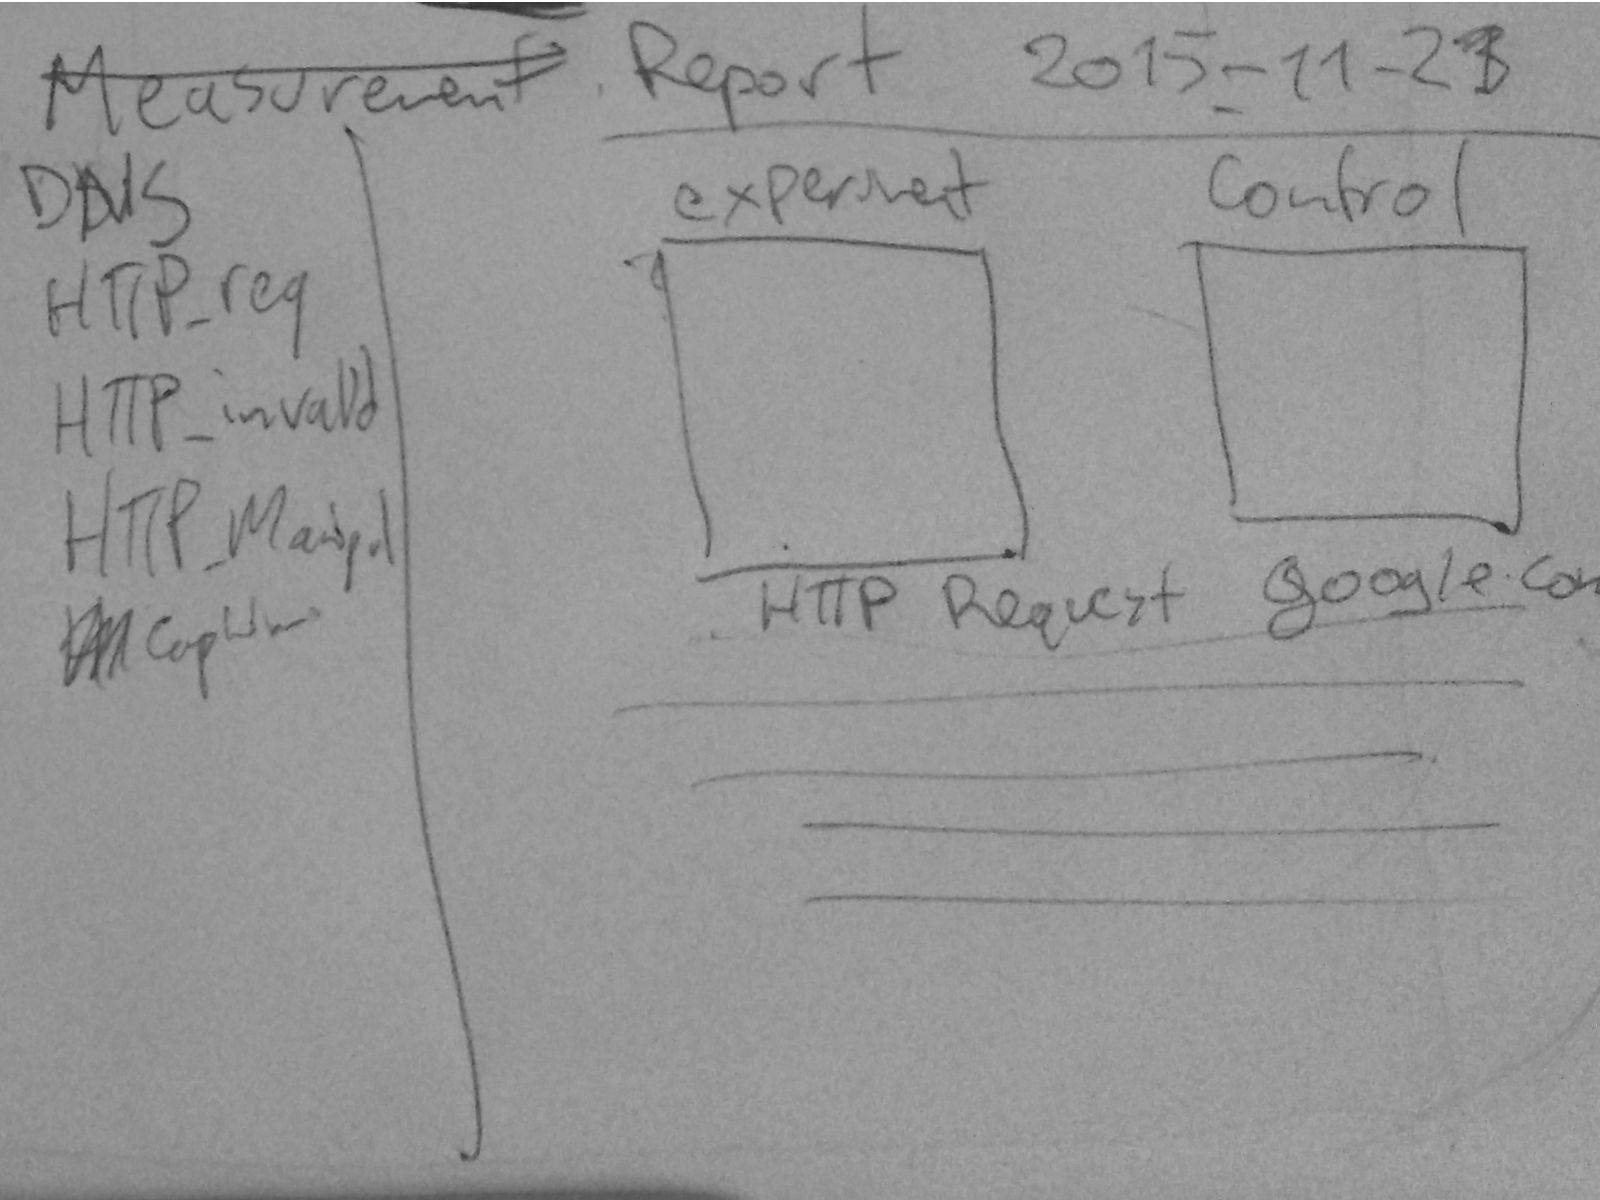 Measurement Report 2015-11-23
DNS
HTTP_req
HTTP_invalid
HTTP_Manipul
experiment
Control
HTTP Request google.com